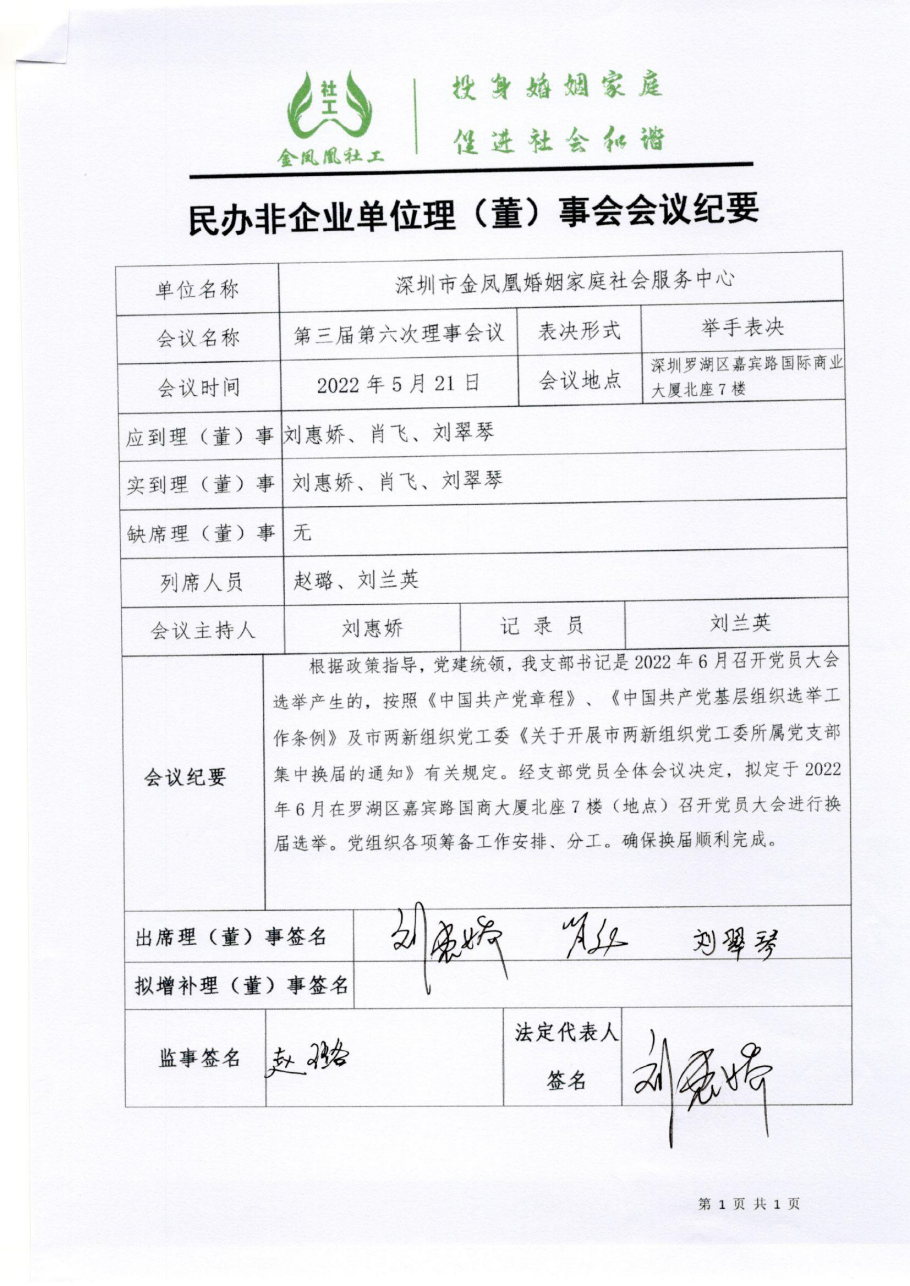 社工
金凤凰社工
投身婚姻家庭
促进社会和谐
民办非企业单位理（董）事会会议纪要
单位名称 深圳市金凤凰婚姻家庭社会服务中心
会议名称 第三届第六次理事会议 表决形式 举手表决
会议时间 2022年5月21日 会议地点 深圳罗湖区嘉宾路国际商业
大厦北座7楼
应到理（董）事 刘惠娇、肖飞、刘翠琴
实到理（董）事 刘惠娇、肖飞、刘翠琴
缺席理（董）事 无
列席人员 赵璐、刘兰英
会议主持人 刘惠娇 记录员 刘兰英
会议纪要
根据政策指导，党建统领，我支部书记是2022年6月召开党员大会
选举产生的，按照《中国共产党章程》、《中国共产党基层组织选举工
作条例》及市两新组织党工委《关于开展市两新组织党工委所属党支部
集中换届的通知》有关规定。经支部党员全体会议决定，拟定于2022
年6月在罗湖区嘉宾路国商大厦北座7楼（地点）召开党员大会进行换
届选举。党组织各项筹备工作安排、分工。确保换届顺利完成。
出席理（董）事签名 刘惠娇 肖飞 刘翠琴
拟增补理（董）事签名
监事签名 赵璐 法定代表人
签名 刘惠娇
第1页共1页